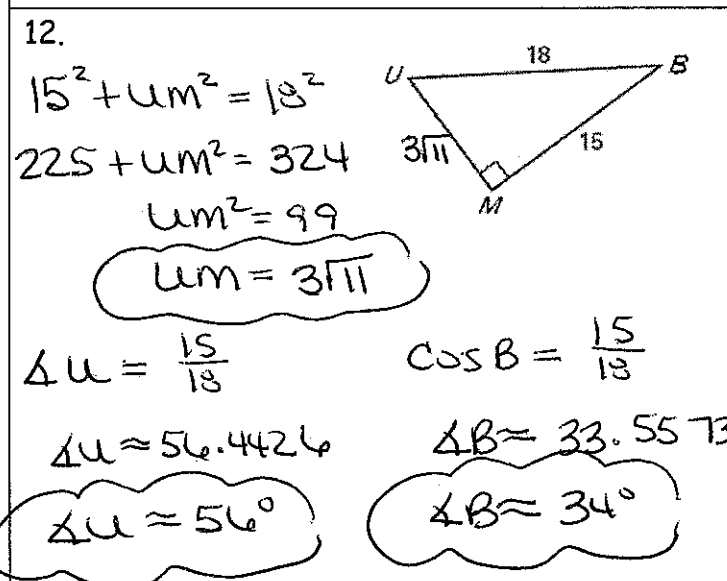 12.
15² + UM² = 18²
225 + UM² = 324
UM² = 99
UM = 3√11
U
18
B
3√11
15
M
∡U = 15/18
cos B = 15/18
∡U ≈ 56.4426
∡B ≈ 33.5573
∡U ≈ 56°
∡B ≈ 34°